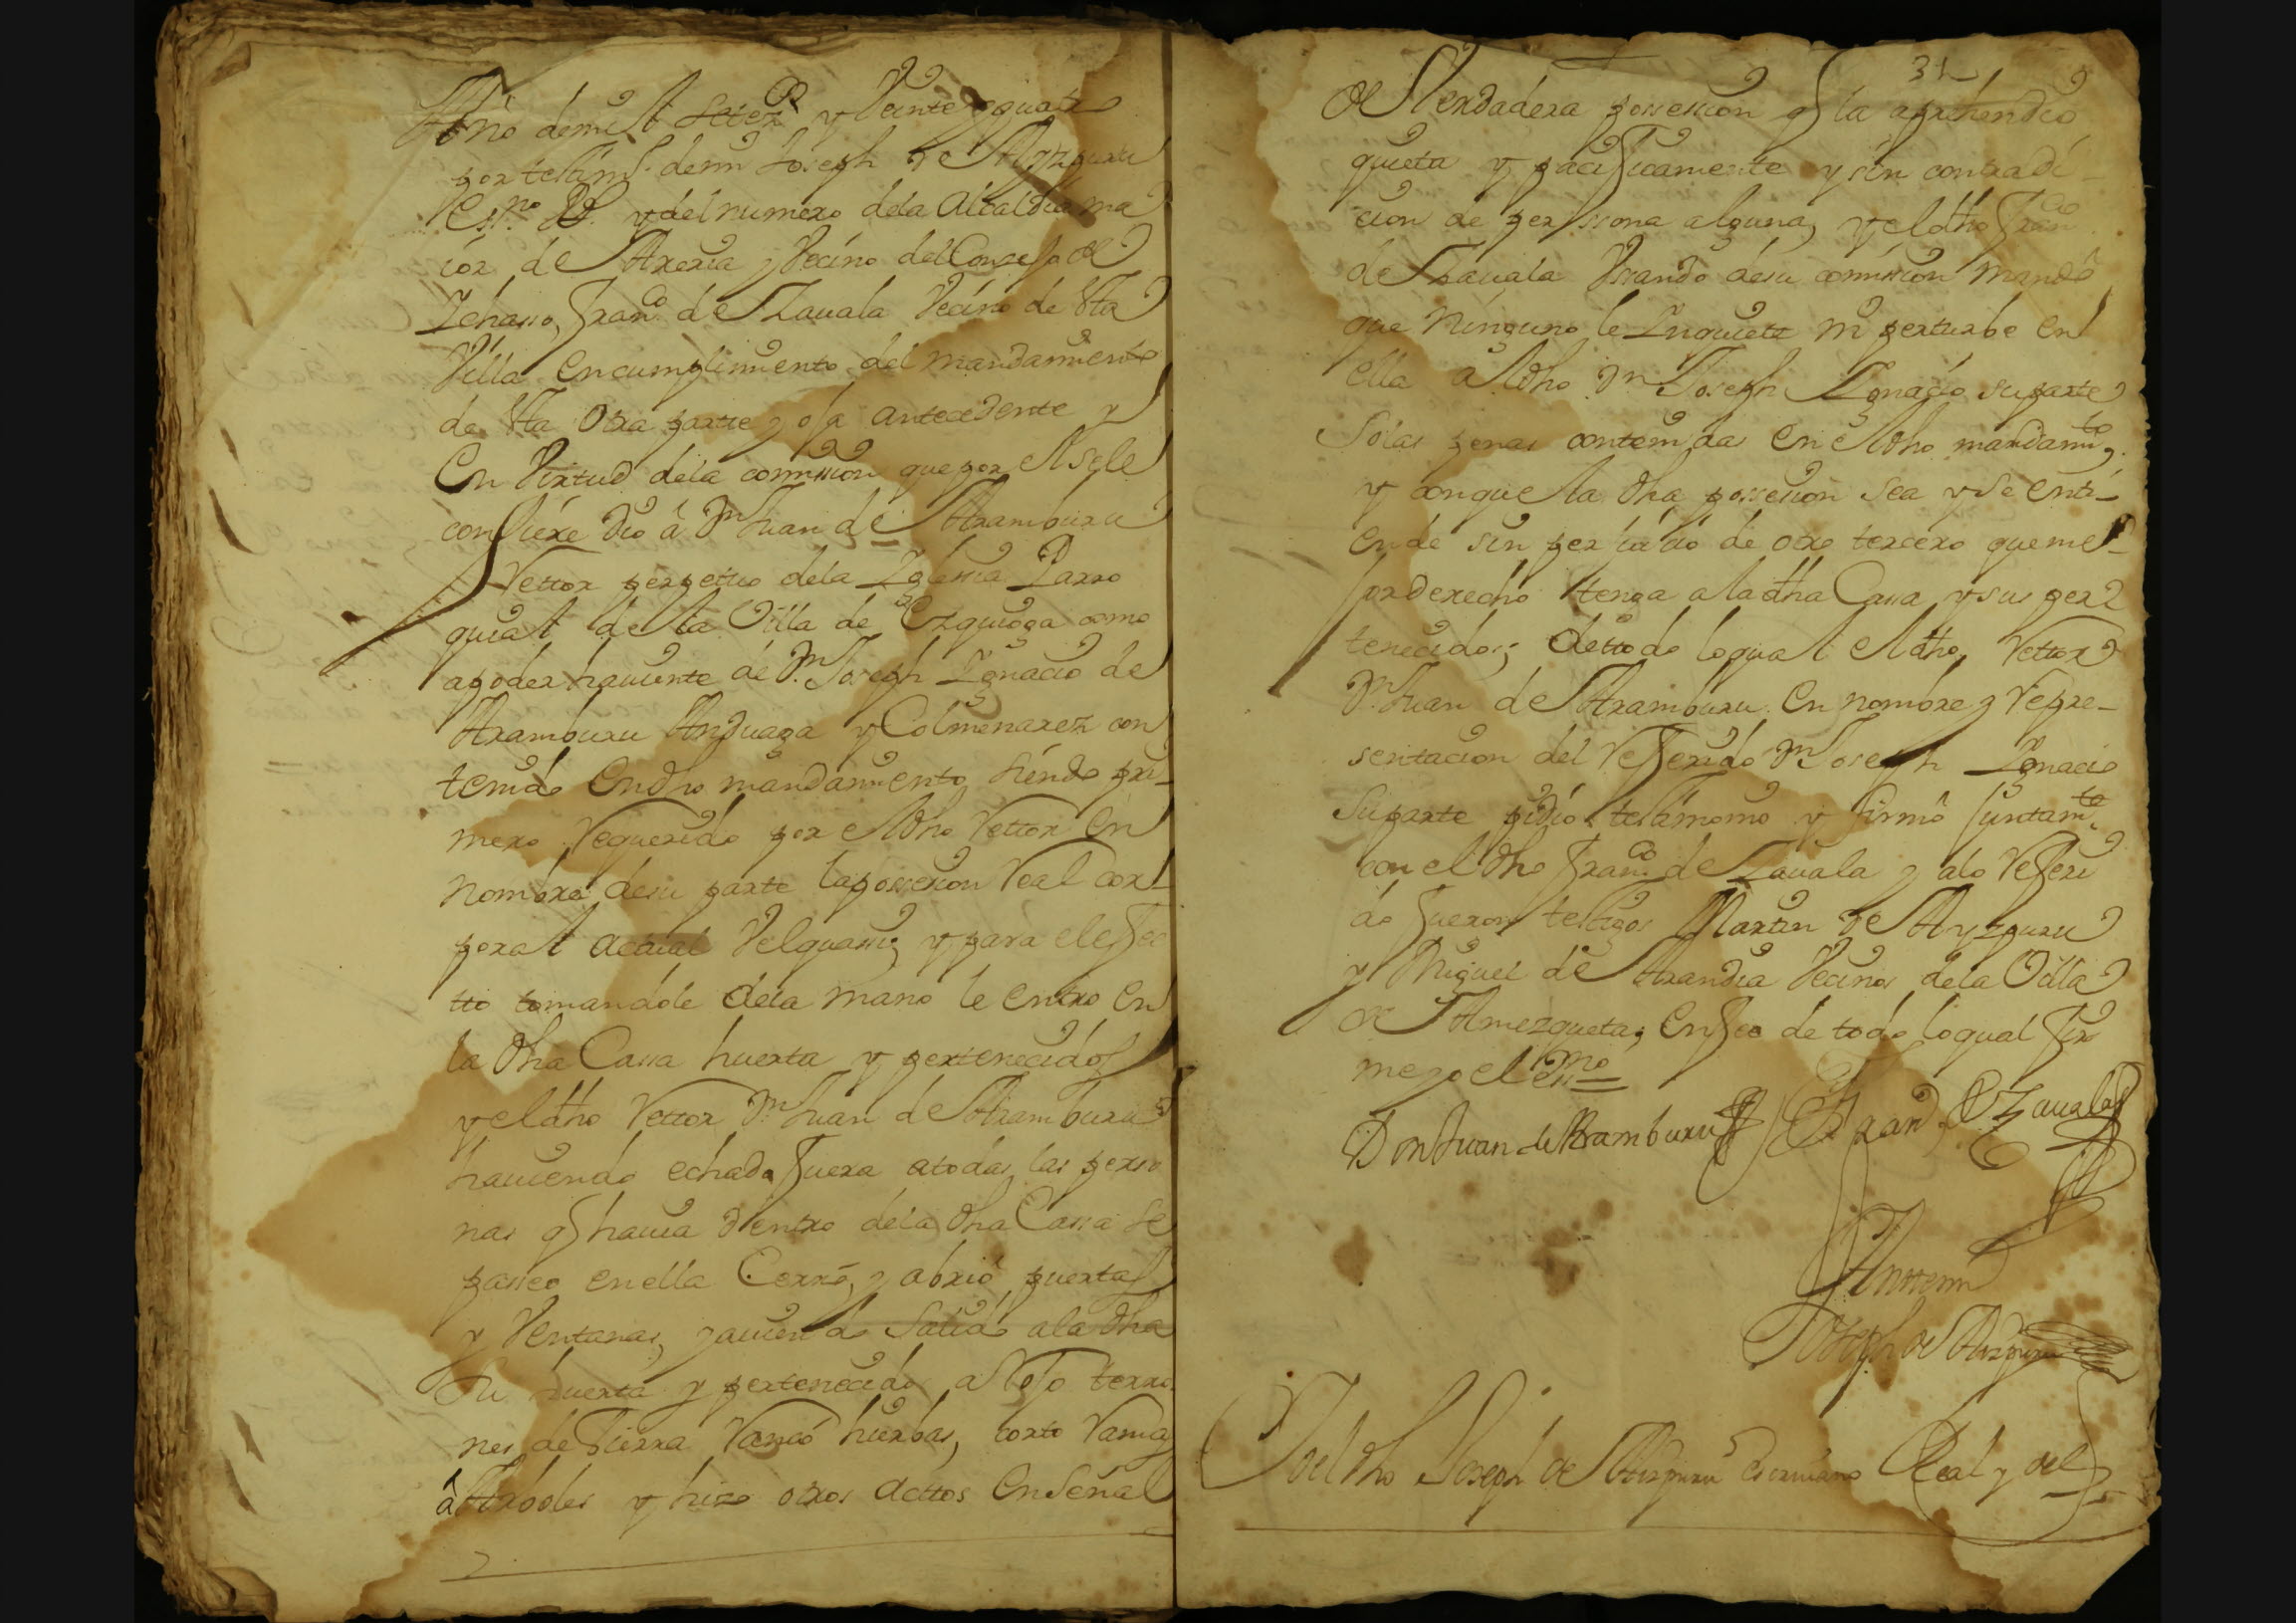 Año de mil setez.os y Veinte y quatro
por testim.o de mi Joseph de Ayzpuru
Ess.no R.l y del numero dela Alcaldia ma
ior de Areria y Vecino del Conzejo de
Ichasso, Fran.co de Zauala Vecino de sta
Villa en cumplimiento del mandamiento
de sta otra parte y oja antecedente y
En Virtud dela comission que por el se le
confiere dio â D.n Juan de Aramburu
Rettor perpetuo dela Iglessia Parro
quial de la Villa de Ezquioga como
apoder hauiente de D.n Joseph Ignacio de
Aramburu Anduaga y Colmenarez con
tenido En dho mandamiento siendo pri-
mero Requerido por el dho Rettor En
nombre de su parte la possession Real cor-
poral actual Velquassi, y para el efec
tto tomandole dela mano le entro en
la dha Cassa huerta y pertenecidos
y el dho Rettor D.n Juan de Aramburu
hauiendo echado fuera a todas las perso
nas q hauia dentro dela dha Cassa se
passeo en ella Cerrò, y abriò puertas
y Ventanas, y auiendo salido a la dha
su huerta y pertenecidos a Vojo terro
nes de Tierra Rancò hierbas, corto Ramas
â Arboles y hizo otros acttos en señal
31
de Verdadera possession q la aprehendio
quieta y pacificamente y sin contradi-
cion de perssona alguna, y el dho Fran.co
de Zauala Vssando de su comission mandò
que ninguno le Inquiete ni perturbe en
ella al dho D.n Joseph Ignacio su parte
so las penas contenidas en el dho mandam.to,
y conque la dha possession sea y se enti-
ende sin perjuicio de otro tercero que me-
jor derecho tenga a la dha Cassa y sus per
tenecidos; de todo lo qual el dho Rettor
D.n Juan de Aramburu En nombre y Repre-
sentacion del Referido D.n Joseph Ignacio
su parte pidiò testimonio y firmò Juntam.te
con el dho Fran.co de Zauala y a lo Referi
do fueron testigos Martin de Ayzpuru
y Miguel de Arandia Vecinos dela Villa
de Amezqueta; En fee de todo lo qual fir
me yo el ess.no =
Don Juan de Aramburu Fran.co de Zauala
Antte mi
Joseph de Aizpuru
Yo el dho Joseph de Aizpuru escriuano Real y del